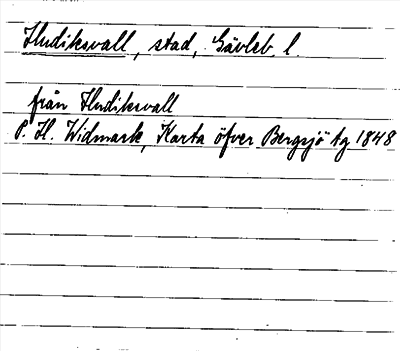 Hudiksvall, stad, Gävleb. l.
från Hudiksvall
P. H. Widmark, Karta öfver Bergsjö tg 1848